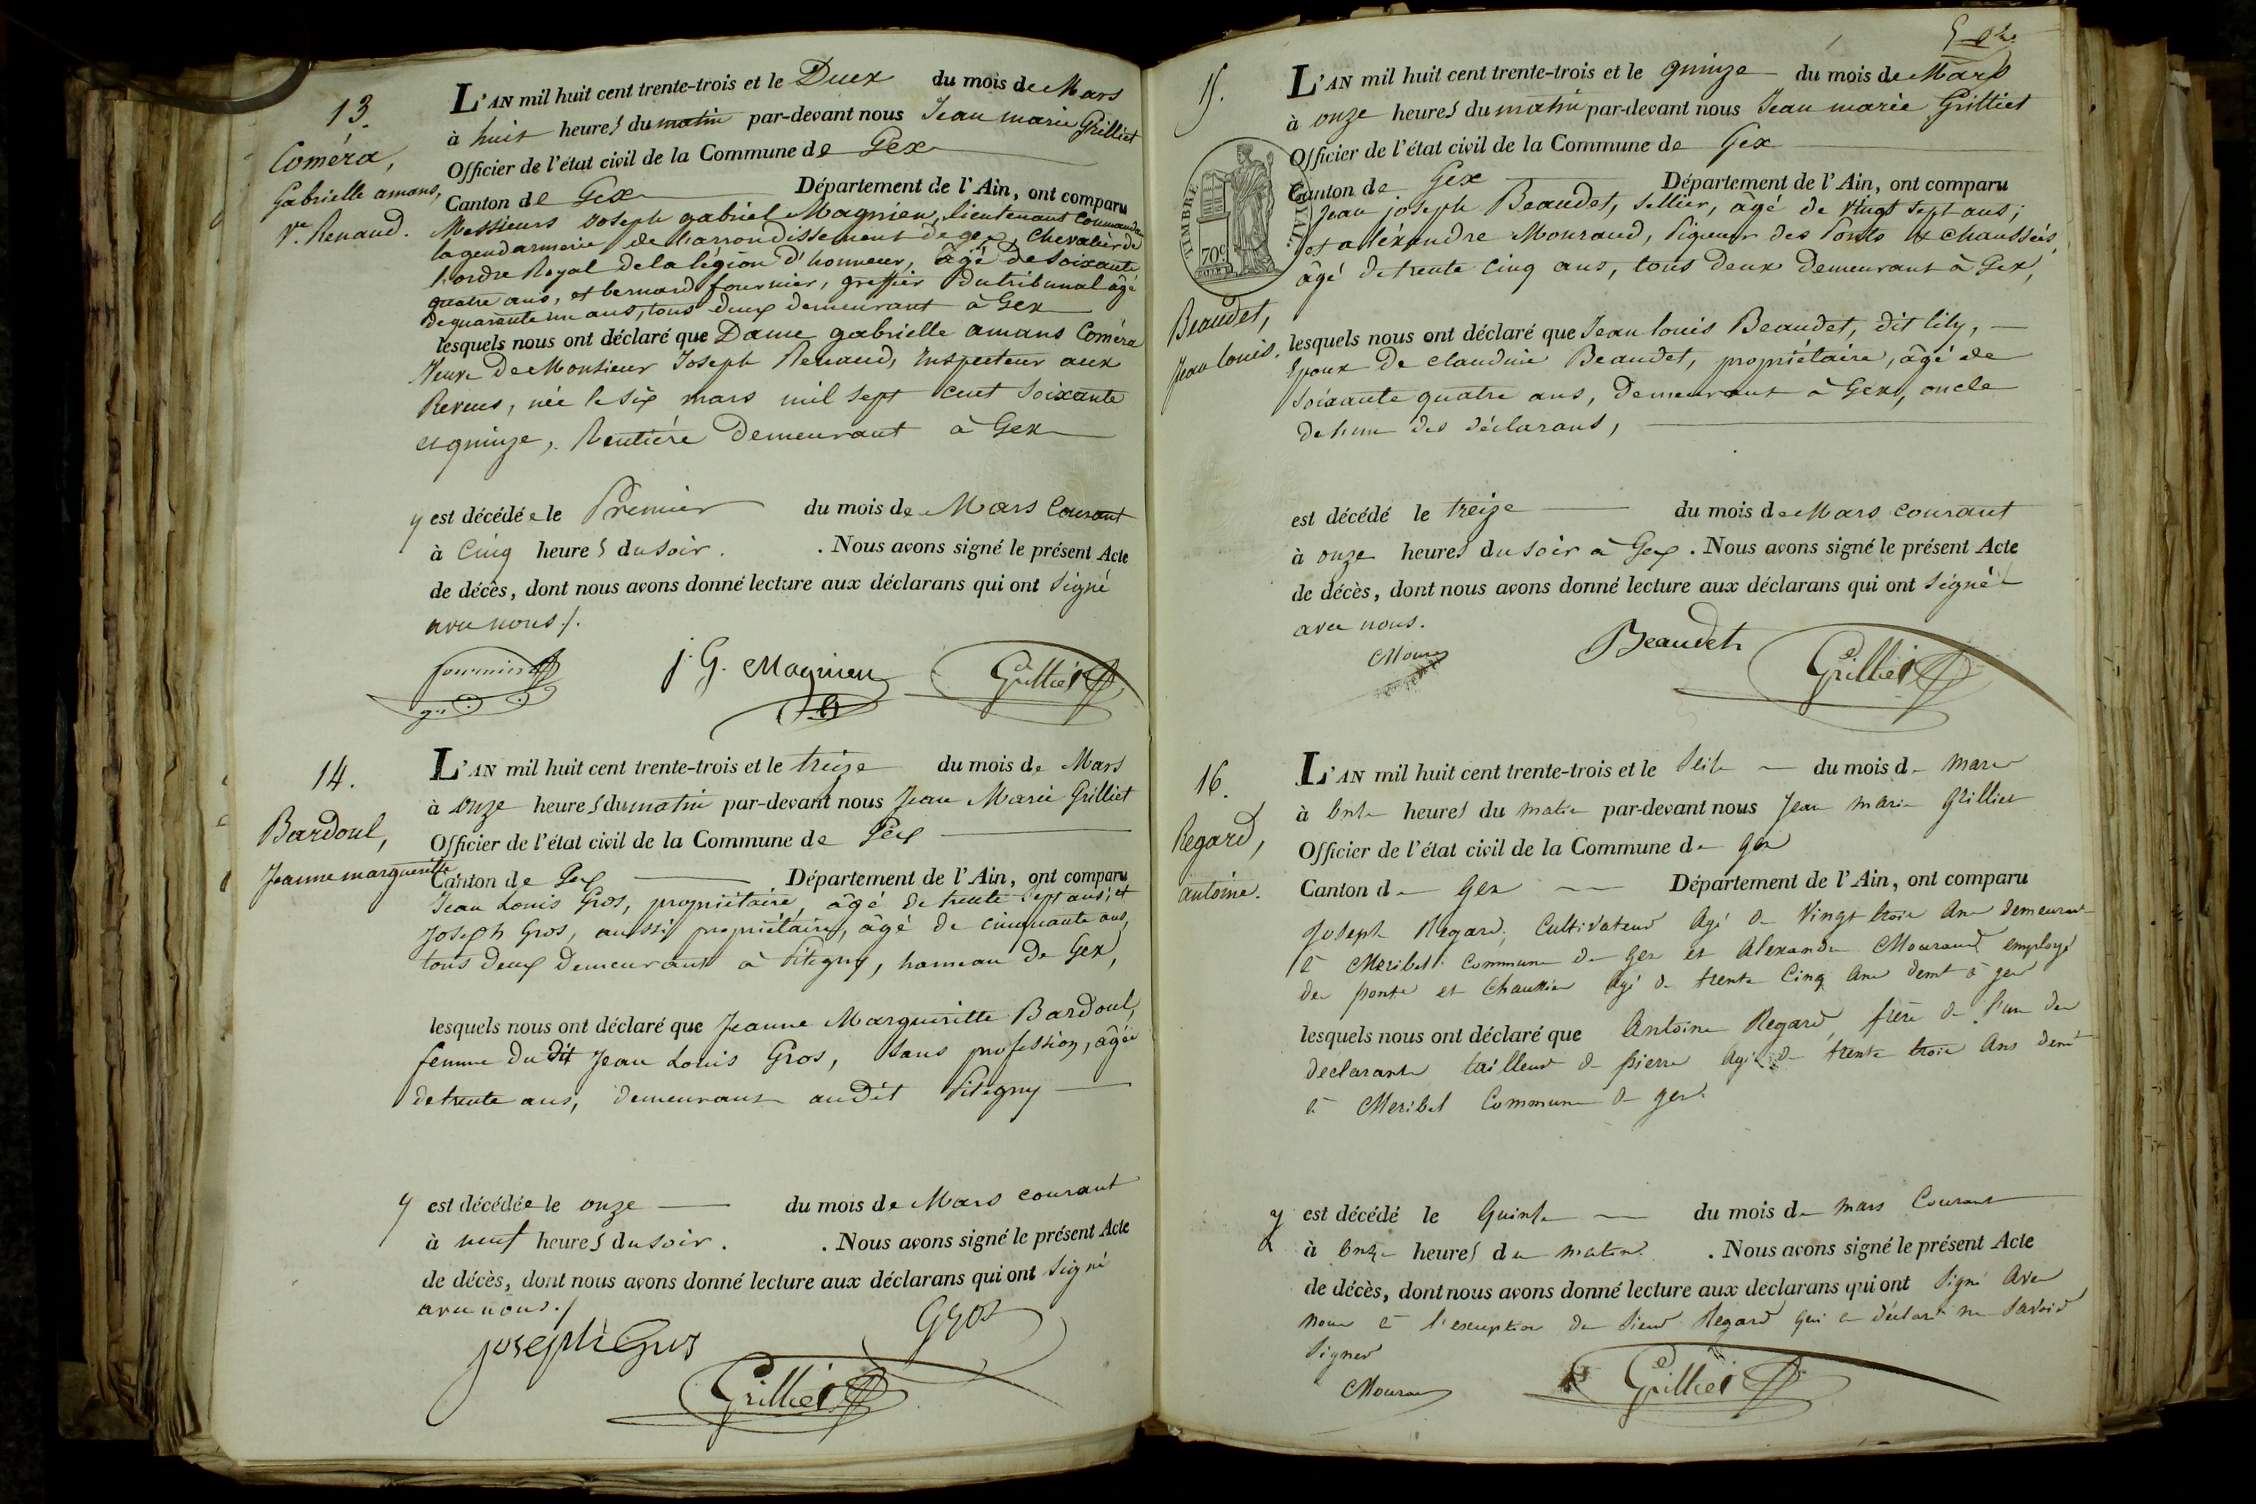 13.
Coméra,
Gabrielle amans,
Ve. Renaud.
L'AN mil huit cent trente-trois et le Duex du mois de Mars
à huit heures du matin par-devant nous Jean marie Grilliet
Officier de l'état civil de la Commune de Gex
Canton de Gex Département de l'Ain, ont comparu
Messieurs Joseph gabriel Magnien, lieutenant Commandant
la gendarmerie de l'arrondissement de gex, Chevalier de
l'ordre Royal de la légion d'honneur, âgé de Soixante
quatre ans, et bernard fournier, greffier du tribunal âgé
de quarante un ans, tous deux demeurant à Gex
lesquels nous ont déclaré que Dame gabrielle amans Coméra
Veuve de Monsieur Joseph Renaud, Inspecteur aux
Revues, née le six mars mil sept cent soixante
et quinze, Rentière demeurant à Gex
y est décédée le Premier du mois de Mars Courant
à Cinq heures du soir. . Nous avons signé le présent Acte
de décès, dont nous avons donné lecture aux déclarans qui ont signé
avec nous ./.
fournier
J. G. Magnien
Grilliet
14.
Bardoul,
Jeanne margueritte
L'AN mil huit cent trente-trois et le treize du mois de Mars
à onze heures du matin par-devant nous Jean Marie Grilliet
Officier de l'état civil de la Commune de Gex
Canton de Gex Département de l'Ain, ont comparu
Jean Louis Gros, propriétaire, âgé de trente sept ans, et
Joseph Gros, aussi propriétaire, âgé de cinquante ans,
tous deux demeurant à Pitegny, hameau de Gex,
lesquels nous ont déclaré que Jeanne Margueritte Bardoul,
femme du dit Jean Louis Gros, sans profession, âgée
de trente ans, demeurant au dit Pitegny
y est décédée le onze du mois de Mars courant
à neuf heures du soir. . Nous avons signé le présent Acte
de décès, dont nous avons donné lecture aux déclarans qui ont signé
avec nous ./
joseph Gros
Gros
Grilliet
15.
TIMBRE ROYAL.
70c
Beaudet,
Jean Louis.
L'AN mil huit cent trente-trois et le quinze du mois de Mars
à onze heures du matin par-devant nous Jean marie Grilliet
Officier de l'état civil de la Commune de Gex
Canton de Gex Département de l'Ain, ont comparu
Jean joseph Beaudet, sellier, âgé de vingt sept ans,
et aléxandre Mouraud, Piqueur des Ponts et chaussées,
âgé de trente cinq ans, tous deux demeurant à Gex,
lesquels nous ont déclaré que Jean Louis Beaudet, dit lily,
Epoux de claudine Beaudet, propriétaire, âgé de
Soixante quatre ans, demeurant à Gex, oncle
de l'un des déclarans,
est décédé le treize du mois de Mars courant
à onze heures du soir à Gex . Nous avons signé le présent Acte
de décès, dont nous avons donné lecture aux déclarans qui ont signé
avec nous.
Beaudet
Grilliet
16.
Regard,
antoine.
L'AN mil huit cent trente-trois et le Seize du mois de mars
à onze heures du matin par-devant nous Jean marie Grilliet
Officier de l'état civil de la Commune de gex
Canton de gex Département de l'Ain, ont comparu
Joseph Regard, Cultivateur agé de vingt trois ans demeurant
à Meribel Commune de gex et Alexandre Mouraud employé
des ponts et chaussées agé de trente Cinq ans demt à gex
lesquels nous ont déclaré que Antoine Regard, frère de l'un des
déclarants tailleur de pierre agé de trente trois ans demt
à Meribel Commune de gex.
y est décédé le Quinze du mois de mars Courant
à onze heures du matin. . Nous avons signé le présent Acte
de décès, dont nous avons donné lecture aux déclarans qui ont signé avec
nous à l'exception du sieur Regard qui a déclaré ne savoir
signer
Grilliet